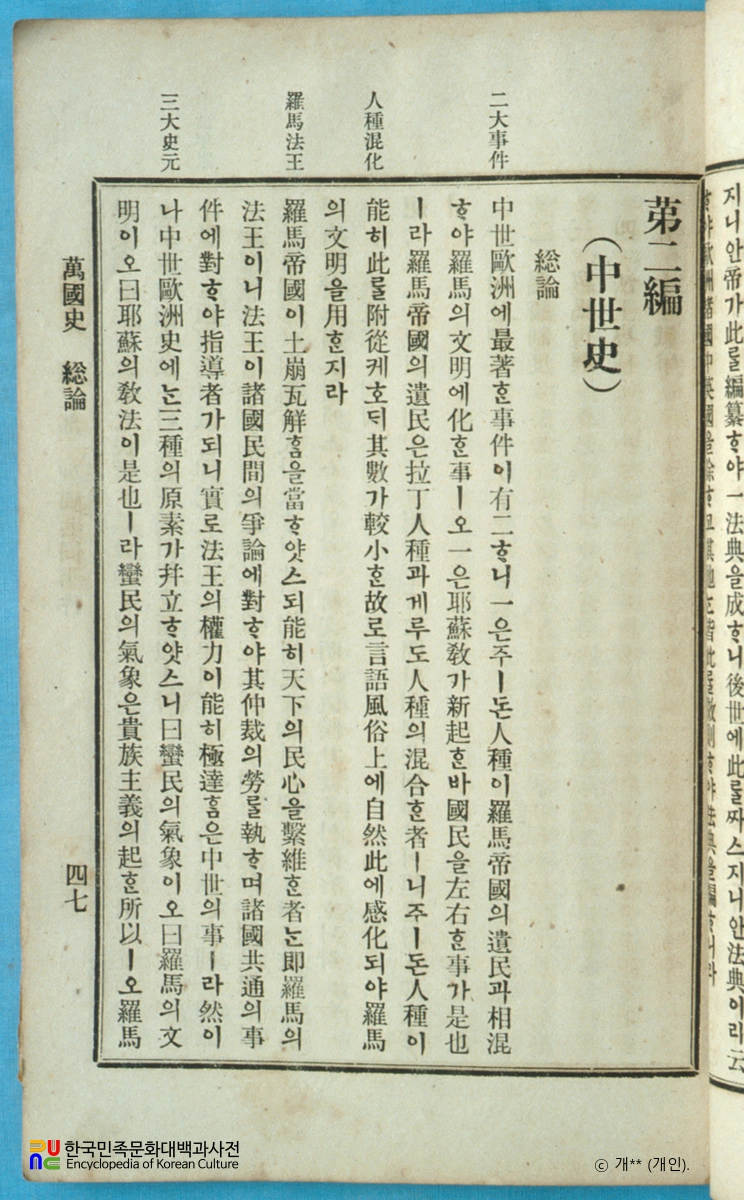 지니안帝가此ᄅᆞᆯ編纂ᄒᆞ야一法典을成ᄒᆞ니後世에此ᄅᆞᆯ짜스지니안法典이리云
第二編
(中世史)
総論
二大事件
中世歐洲에最著ᄒᆞᆫ事件이有二ᄒᆞ니一은주ㅣ돈人種이羅馬帝國의遺民과相混
ᄒᆞ야羅馬의文明에化ᄒᆞᆫ事ㅣ오一은耶蘇敎가新起ᄒᆞᆫ바國民을左右ᄒᆞᆫ事가是也
ㅣ라羅馬帝國의遺民은拉丁人種과게루도人種의混合ᄒᆞᆫ者ㅣ니주ㅣ돈人種이
人種混化
能히此ᄅᆞᆯ附從케호ᄃᆡ其數가較小ᄒᆞᆫ故로言語風俗上에自然此에感化되야羅馬
의文明을用ᄒᆞᆫ지라
羅馬法王
羅馬帝國이土崩瓦解ᄒᆞᆷ을當ᄒᆞ얏스되能히天下의民心을繫維ᄒᆞᆫ者ᄂᆞᆫ即羅馬의
法王이니法王이諸國民間의爭論에對ᄒᆞ야其仲裁의勞ᄅᆞᆯ執ᄒᆞ며諸國共通의事
件에對ᄒᆞ야指導者가되니實로法王의權力이能히極達ᄒᆞᆷ은中世의事ㅣ라然이
三大史元
나中世歐洲史에ᄂᆞᆫ三種의原素가幷立ᄒᆞ얏스니曰蠻民의氣象이오曰羅馬의文
明이오曰耶蘇의敎法이是也ㅣ라蠻民의氣象은貴族主義의起ᄒᆞᆫ所以ㅣ오羅馬
萬國史 総論 四七
한국민족문화대백과사전
Encyclopedia of Korean Culture
ⓒ 개** (개인).